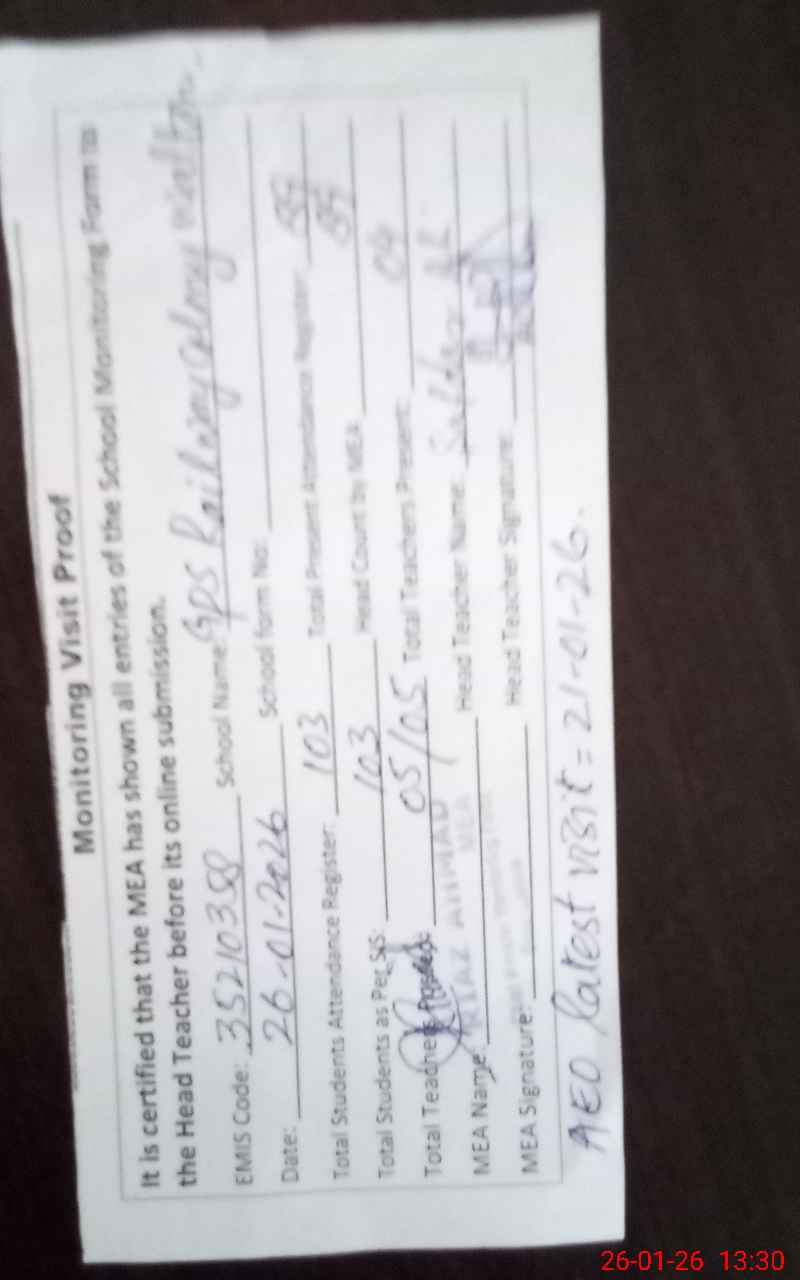 Monitoring Visit Proof
It is certified that the MEA has shown all entries of the School Monitoring Form to
the Head Teacher before its online submission.
EMIS Code: 35210358 School Name: GPS Railway Colony Walton.
Date: 26-01-2026 School form No:
Total Students Attendance Register: 103 Total Present Attendance Register: 89
Total Students as Per SIS: 103 Head Count by MEA 89
Total Teachers Posted: 05/05 Total Teachers Present: 04
MEA Name: RIAZ AHMAD MEA Head Teacher Name:
MEA Signature: Head Teacher Signature:
AEO latest visit = 21-01-26.
26-01-26 13:30